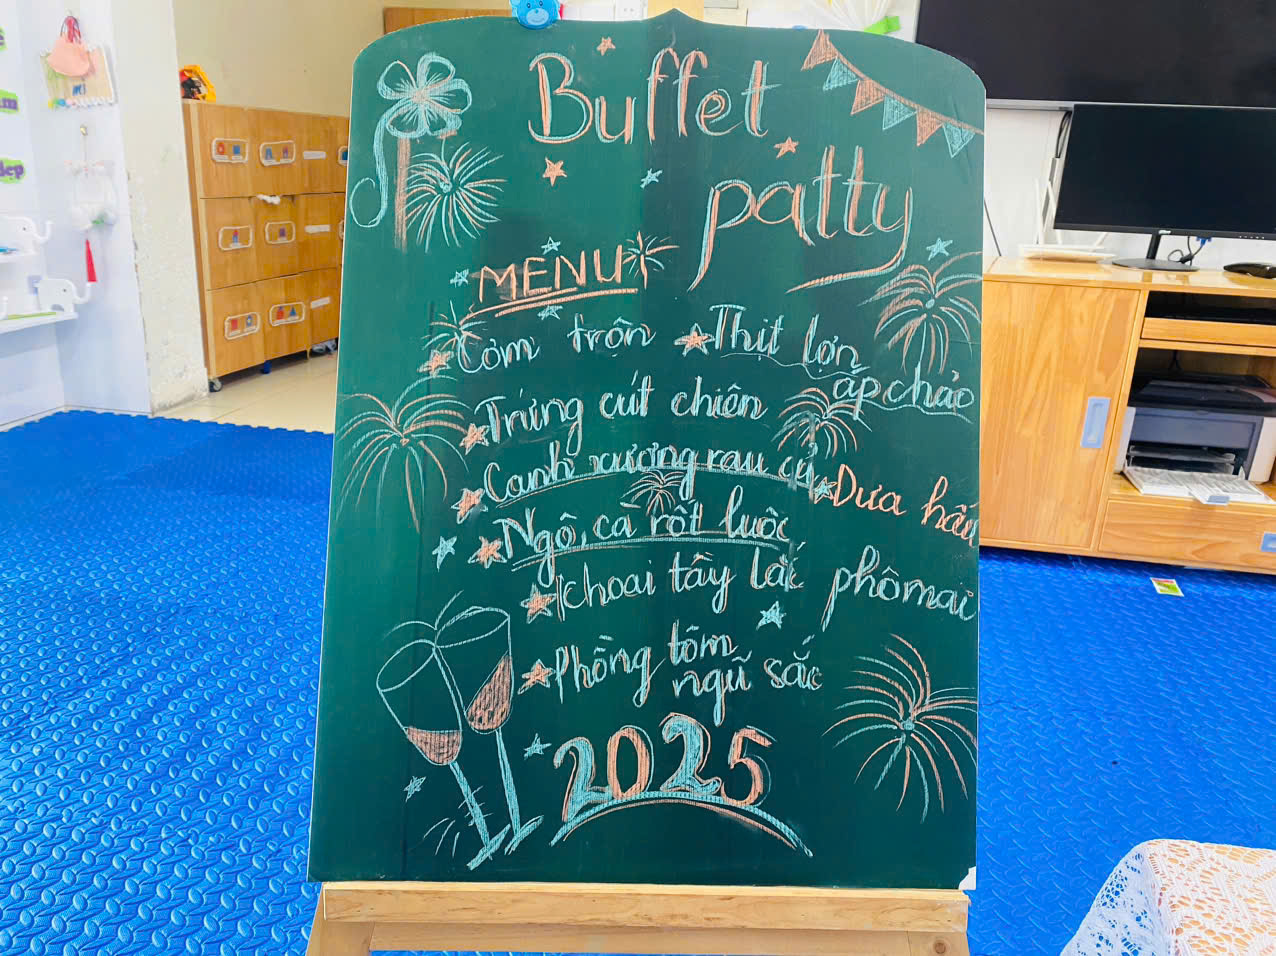 Buffet
patty
MENU
Cơm trộn
Thịt lợn
áp chảo
Trứng cút chiên
Canh xương rau củ
Dưa hấu
Ngô, cà rốt luộc
Khoai tây lắc phômai
Phồng tôm
ngũ sắc
2025